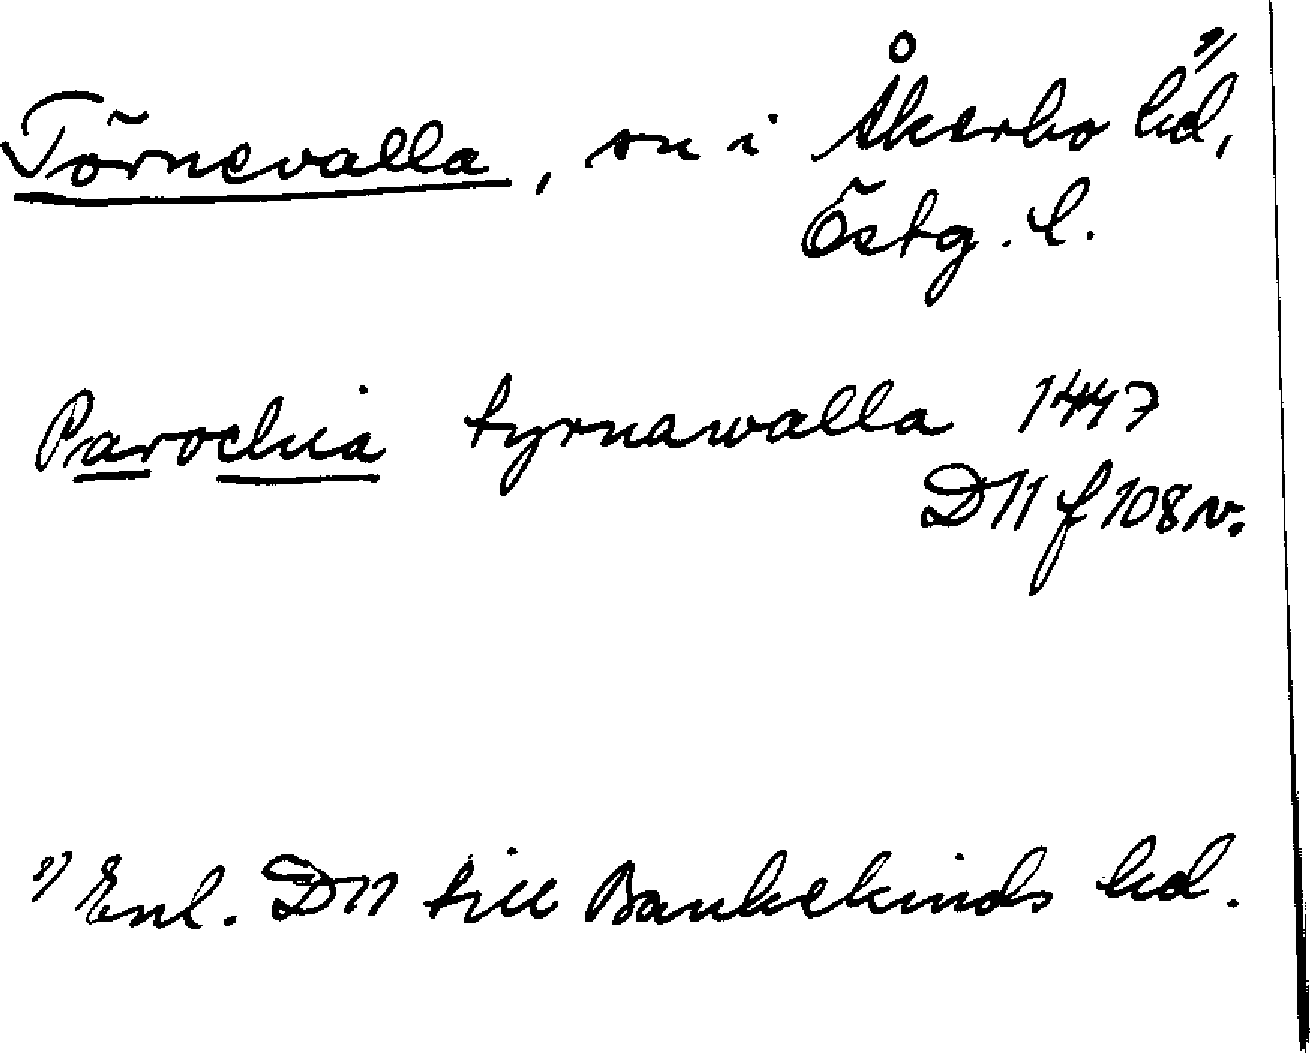 Törnevalla, sn i Åkerbo hd, 1)
Östg. l.
Parochia tyrnawalla 1447
D11 f 108 v.
1) Enl. D11 till Bankekinds hd.